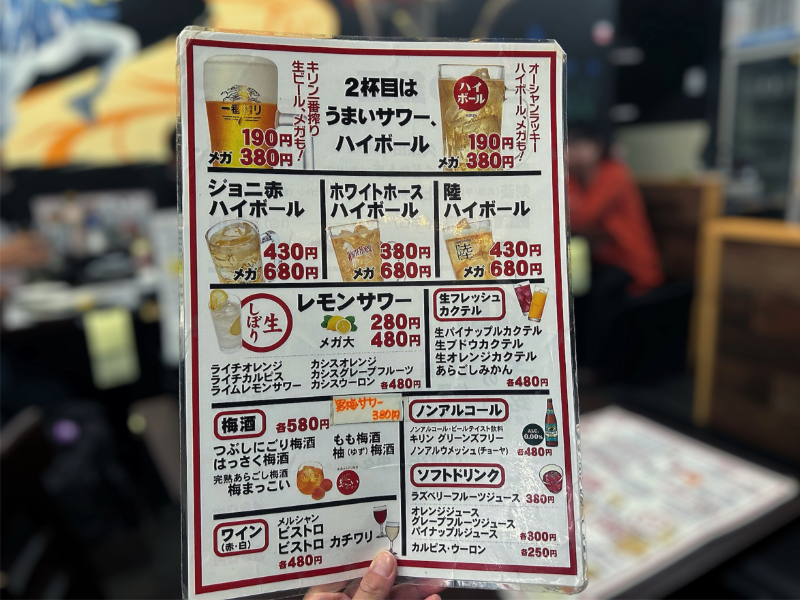 一番搾り
キリン一番搾り
生ビール、メガも！
190円
メガ 380円
2杯目は
うまいサワー、
ハイボール
ハイ
ボール
オーシャンラッキー
ハイボール、メガも！
190円
メガ 380円
ジョニ赤
ハイボール
430円
メガ 680円
ホワイトホース
ハイボール
380円
メガ 680円
陸
ハイボール
陸
430円
メガ 680円
生
しぼり
レモンサワー
280円
メガ大 480円
ライチオレンジ
ライチカルピス
ライムレモンサワー
カシスオレンジ
カシスグレープフルーツ
カシスウーロン 各480円
生フレッシュ
カクテル
生パイナップルカクテル
生ブドウカクテル
生オレンジカクテル
あらごしみかん
各480円
サワー
380円
梅酒 各580円
つぶしにごり梅酒
はっさく梅酒
完熟あらごし梅酒
梅まっこい
もも梅酒
柚(ゆず)梅酒
ワイン
(赤・白)
メルシャン
ビストロ
ビストロ カチワリ
各480円
ノンアルコール
ノンアルコール・ビールテイスト飲料
キリン グリーンズフリー
ノンアルウメッシュ(チョーヤ)
ALC.
0.00%
各480円
ソフトドリンク
ラズベリーフルーツジュース 380円
オレンジジュース
グレープフルーツジュース
パイナップルジュース 各300円
カルピス・ウーロン 各250円